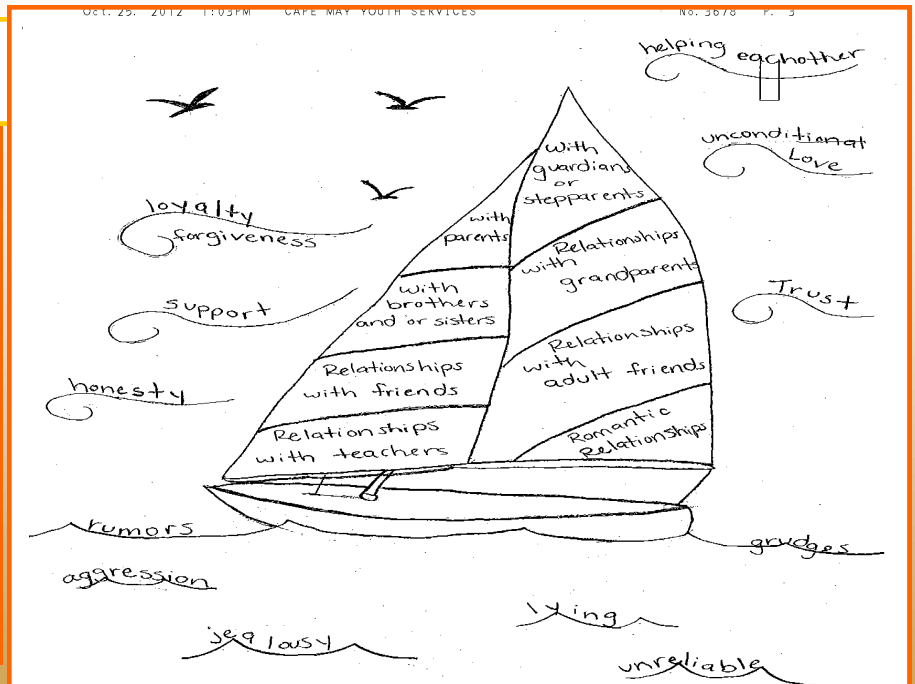 Oct. 25. 2012 1:03PM CAPE MAY YOUTH SERVICES No. 3678 P. 3
helping eachother
unconditional
Love
Trust
loyalty
forgiveness
support
honesty
with
guardians
or
stepparents
with
parents
Relationships
with
grandparents
with
brothers
and or sisters
Relationships
with
adult friends
Relationships
with friends
Romantic
Relationships
Relationships
with teachers
rumors
grudges
aggression
lying
jealousy
unreliable